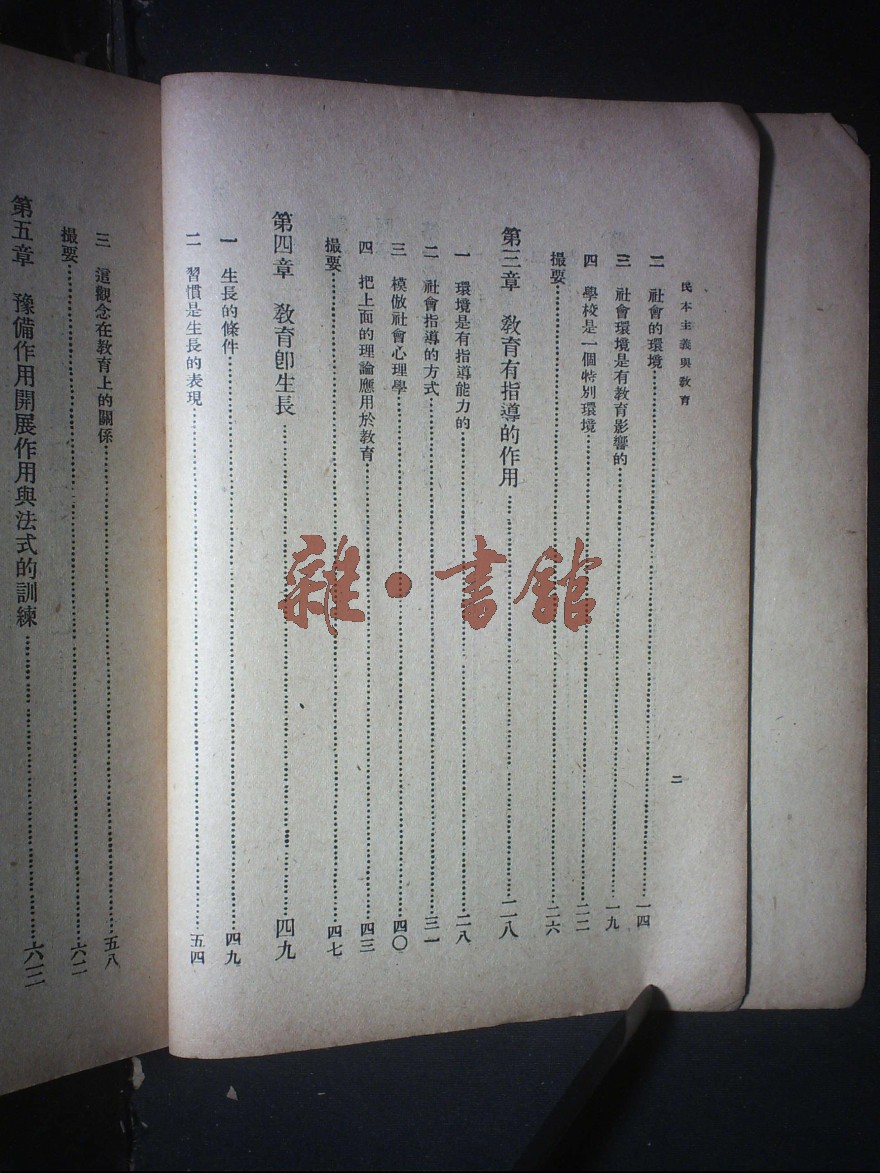 民本主義與教育
二
二 社會的環境……一四
三 社會環境是有教育影響的……一九
四 學校是一個特別環境……二二
撮要……二六
第三章 教育有指導的作用……二八
一 環境是有指導能力的……二八
二 社會指導的方式……三一
三 模倣社會心理學……四〇
四 把上面的理論應用於教育……四三
撮要……四七
第四章 教育卽生長……四九
一 生長的條件……四九
二 習慣是生長的表現……五四
三 這觀念在教育上的關係……五八
撮要……六二
第五章 豫備作用開展作用與法式的訓練……六三
雜·書館